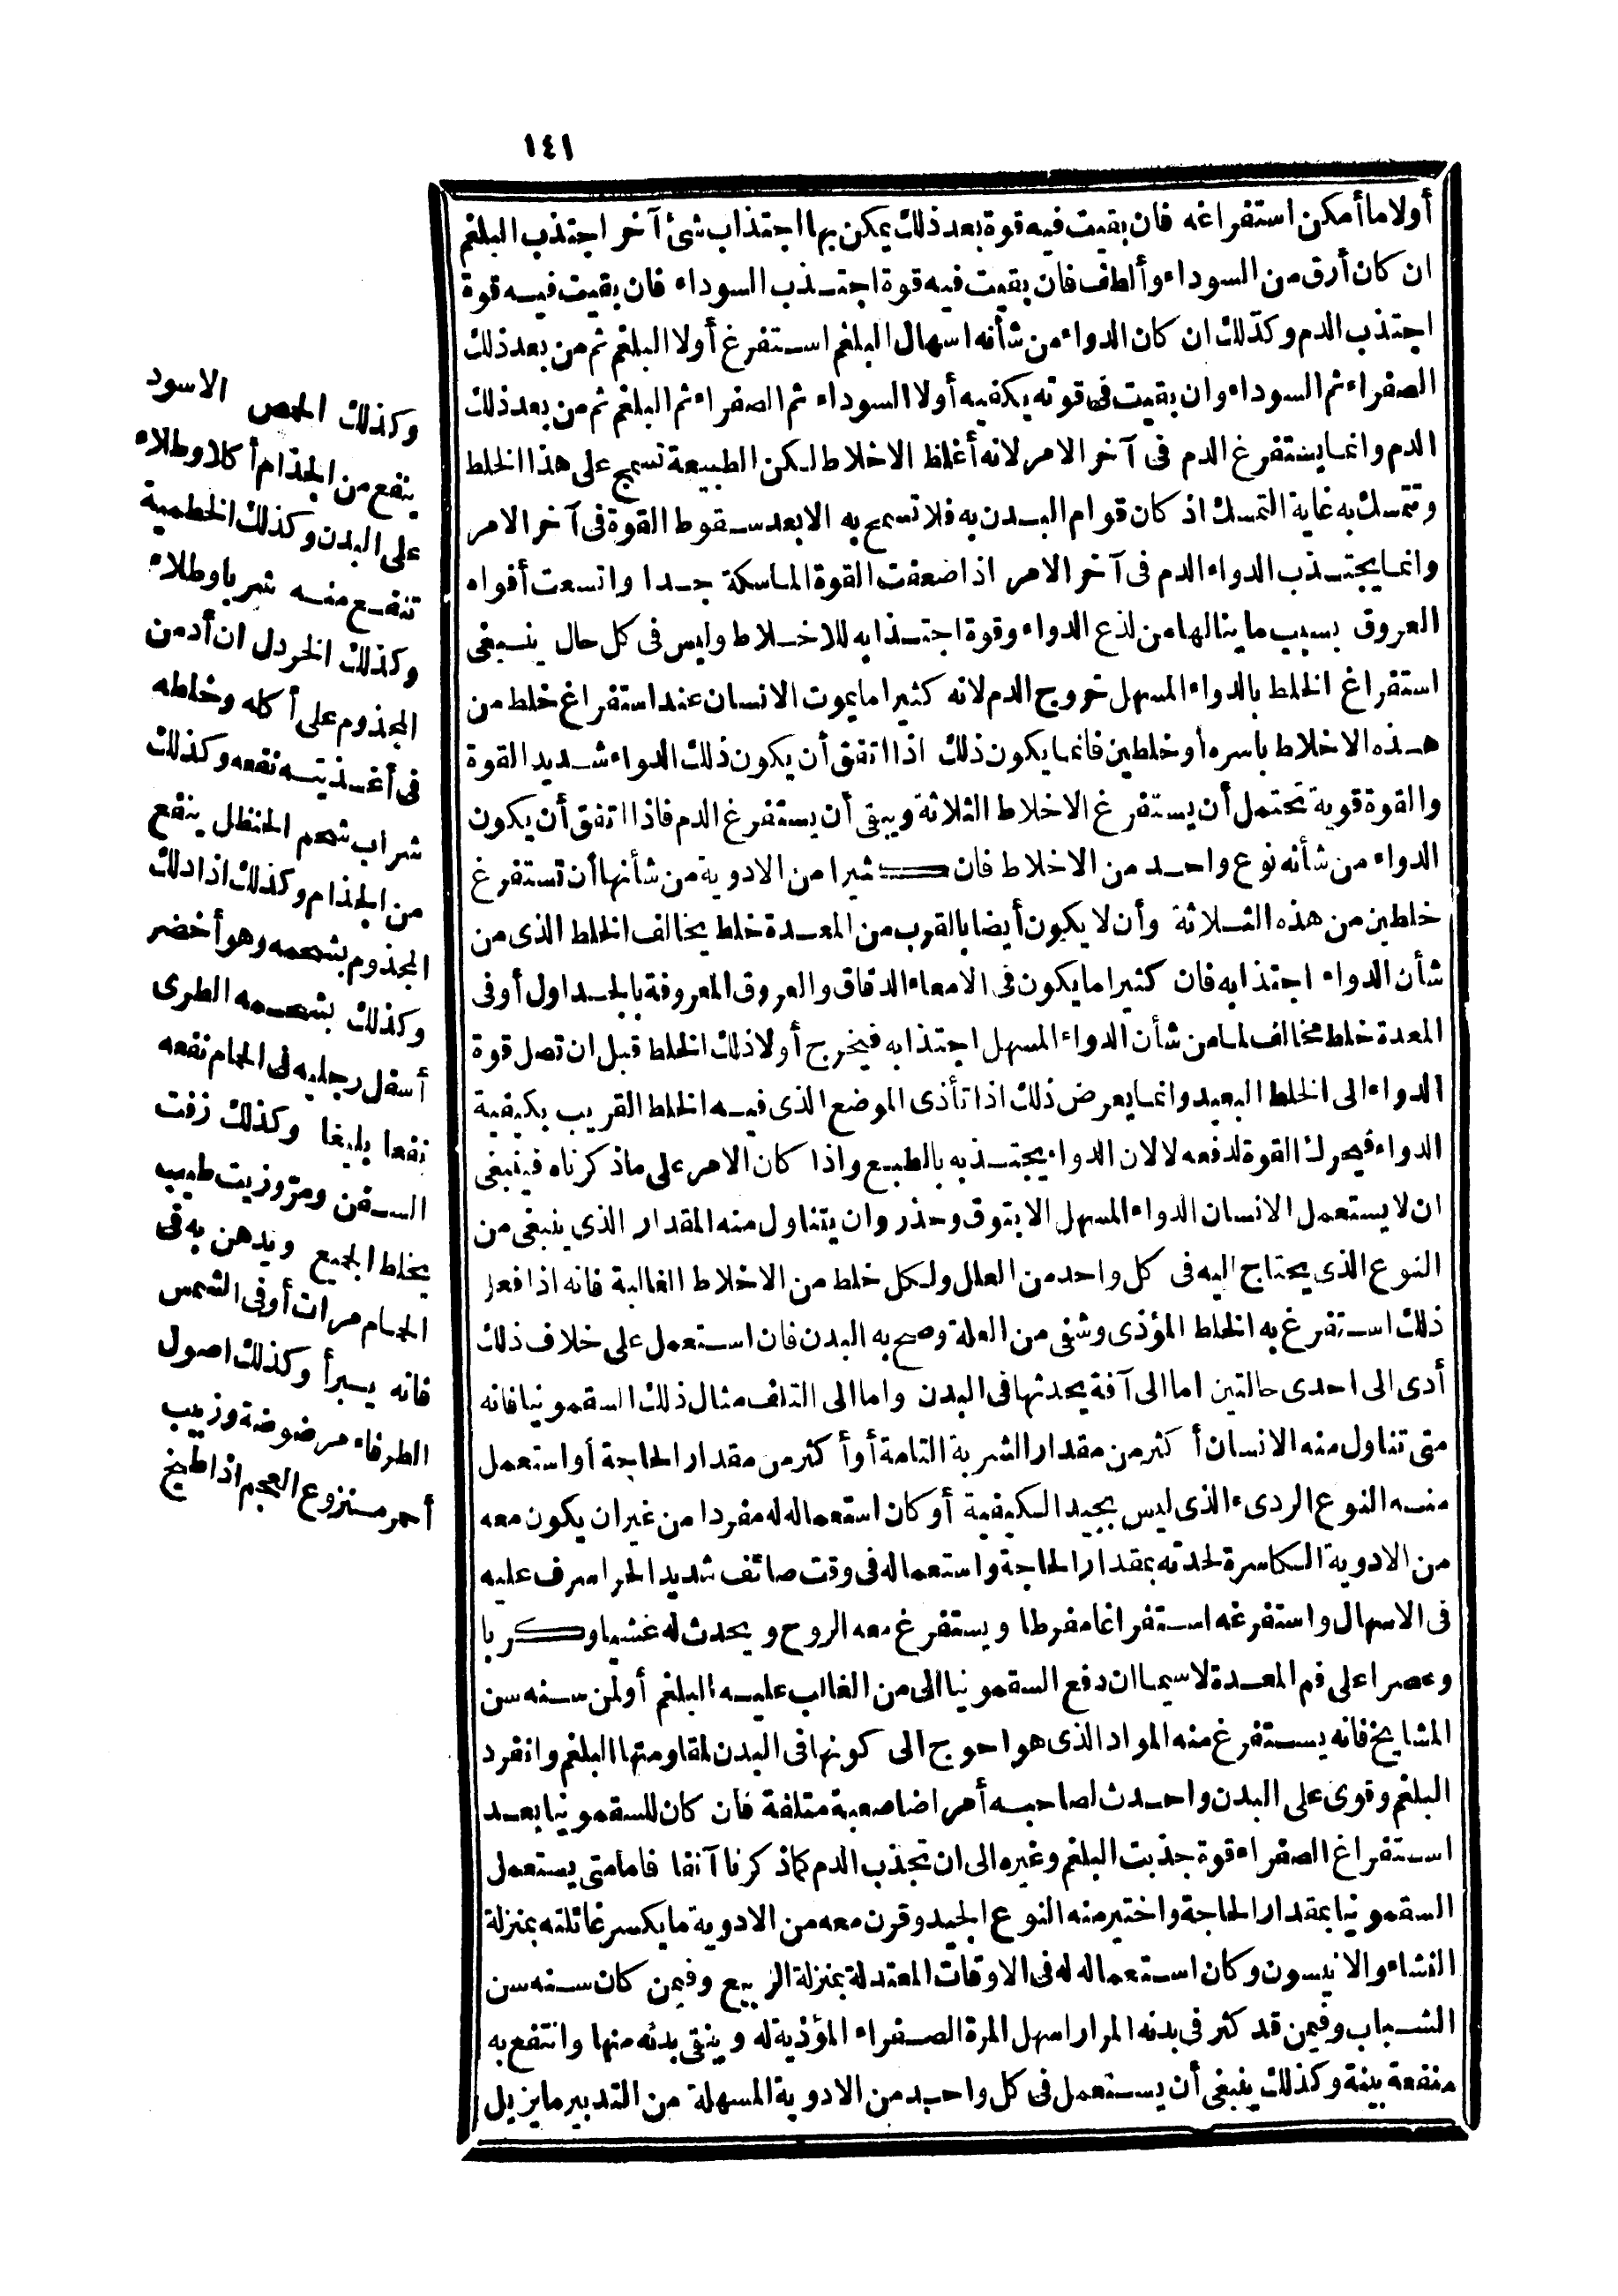 ١٤١
أولا ما أمكن استفراغه فان بقيت فيه قوة بعد ذلك يمكن بها اجتذاب شئ آخر اجتذب البلغم
ان كان أرق من السوداء وألطف فان بقيت فيه قوة اجتذب السوداء فان بقيت فيه قوة
اجتذب الدم وكذلك ان كان الدواء من شأنه اسهال البلغم استفرغ أولا البلغم ثم من بعد ذلك
الصفراء ثم السوداء وان بقيت فى قوته يكفيه أولا السوداء ثم الصفراء ثم البلغم ثم من بعد ذلك
الدم وانما يستفرغ الدم فى آخر الامر لانه أغلظ الاخلاط لكن الطبيعة تسمج على هذا الخلط
وتتمسك به غاية التمسك اذ كان قوام البدن به فلا تسمح به الا بعد سقوط القوة فى آخر الامر
وانما يجتذب الدواء الدم فى آخر الامر اذا ضعفت القوة الماسكة جدا واتسعت أفواه
العروق بسبب ما ينالها من لذع الدواء وقوة اجتذابه للاخلاط وليس فى كل حال ينبغى
استفراغ الخلط بالدواء المسهل خروج الدم لانه كثيرا ما يموت الانسان عند استفراغ خلط من
هذه الاخلاط باسره أو خلطين فانما يكون ذلك اذا اتفق أن يكون ذلك الدواء شديد القوة
والقوة قوية تحتمل أن يستفرغ الاخلاط الثلاثة ويبقى أن يستفرغ الدم فاذا اتفق أن يكون
الدواء من شأنه نوع واحد من الاخلاط فان كثيرا من الادوية من شأنها أن تستفرغ
خلطين من هذه الثلاثة وأن لا يكون أيضا بالقرب من المعدة خلط يخالف الخلط الذى من
شأن الدواء اجتذابه فان كثيرا ما يكون فى الامعاء الدقاق والعروق المعروفة بالجداول أو فى
المعدة خلط مخالف لما من شأن الدواء المسهل اجتذابه فيخرج أولا ذلك الخلط قبل ان تصل قوة
الدواء الى الخلط البعيد وانما يعرض ذلك اذا تأذى الموضع الذى فيه الخلط القريب بكيفية
الدواء فيحرك القوة لدفعه لا لان الدواء يجتذبه بالطبع واذا كان الامر على ما ذكرناه فينبغى
ان لا يستعمل الانسان الدواء المسهل الا بتوق وحذر وان يتناول منه المقدار الذي ينبغى من
النوع الذى يحتاج اليه فى كل واحد من العلل ولكل خلط من الاخلاط الغالبة فانه اذا فعل
ذلك استفرغ به الخلط المؤذى وشفى من العلة وصح به البدن فان استعمل على خلاف ذلك
أدى الى احدى حالتين اما الى آفة يحدثها فى البدن واما الى التلف مثال ذلك السقمونيا فانه
متى تناول منه الانسان أكثر من مقدار الشربة التامة أو أكثر من مقدار الحاجة أو استعمل
منه النوع الردىء الذى ليس بجيد الكيفية أو كان استعماله له مفردا من غير ان يكون معه
من الادوية الكاسرة لحدته بمقدار الحاجة واستعماله فى وقت صائف شديد الحر اسرف عليه
فى الاسهال واستفرغه استفراغا مفرطا ويستفرغ معه الروح ويحدث له غشيا وكربا
وعصرا على فم المعدة لاسيما ان دفع السقمونيا الى من الغالب عليه البلغم أو لمن سنه سن
المشايخ فانه يستفرغ منه المواد الذى هو احوج الى كونها فى البدن لمقاومتها البلغم وانفرد
البلغم وقوى على البدن واحدث لصاحبه أمراضا صعبة متلفة فان كان للسقمونيا بعد
استفراغ الصفراء قوة جذبت البلغم وغيره الى ان تجذب الدم كما ذكرنا آنفا فاما متى يستعمل
السقمونيا بمقدار الحاجة واختير منه النوع الجيد وقرن معه من الادوية ما يكسر غائلته بمنزلة
النشاء والانيسون وكان استعماله له فى الاوقات المعتدلة بمنزلة الربيع وفيمن كان سنه سن
الشباب وفيمن قد كثر فى بدنه المرار اسهل المرة الصفراء المؤذية له وينقى بدنه منها وانتفع به
منفعة بينة وكذلك ينبغى أن يستعمل فى كل واحد من الادوية المسهلة من التدبير ما يزيل
وكذلك الحمص الاسود
ينفع من الجذام أكلا وطلاء
على البدن وكذلك الخطمية
تنفع منه شربا وطلاء
وكذلك الخردل ان أدمن
المجذوم على أكله وخلطه
فى أغذيته نفعه وكذلك
شراب شحم الحنظل ينفع
من الجذام وكذلك اذا دلك
المجذوم بشحمه وهو أخضر
وكذلك بشحمه الطرى
أسفل رجليه فى الحمام نفعه
نفعا بليغا وكذلك زفت
السفن ومرّ وزيت طيب
يخلط الجميع ويدهن به فى
الحمام مرات أو فى الشمس
فانه يبرأ وكذلك اصول
الطرفاء مرضوضة وزبيب
أحمر منزوع العجم اذا طبخ